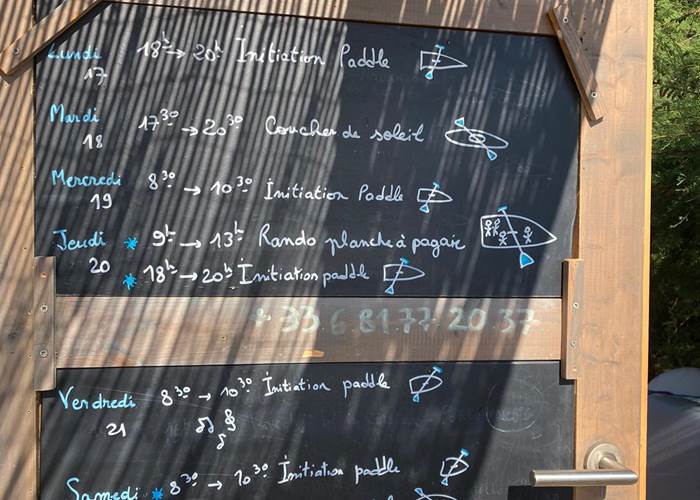 Lundi 18h → 20h Initiation Paddle
17
Mardi 17 30 → 20 30 Coucher de soleil
18
Mercredi 8 30 → 10 30 Initiation Paddle
19
Jeudi * 9h → 13h Rando planche à pagaie
20 * 18h → 20h Initiation paddle
+ 33.6.81.77.20.37
Vendredi 8 30 → 10 30 Initiation paddle
21
Samedi * 8 30 → 10 30 Initiation paddle